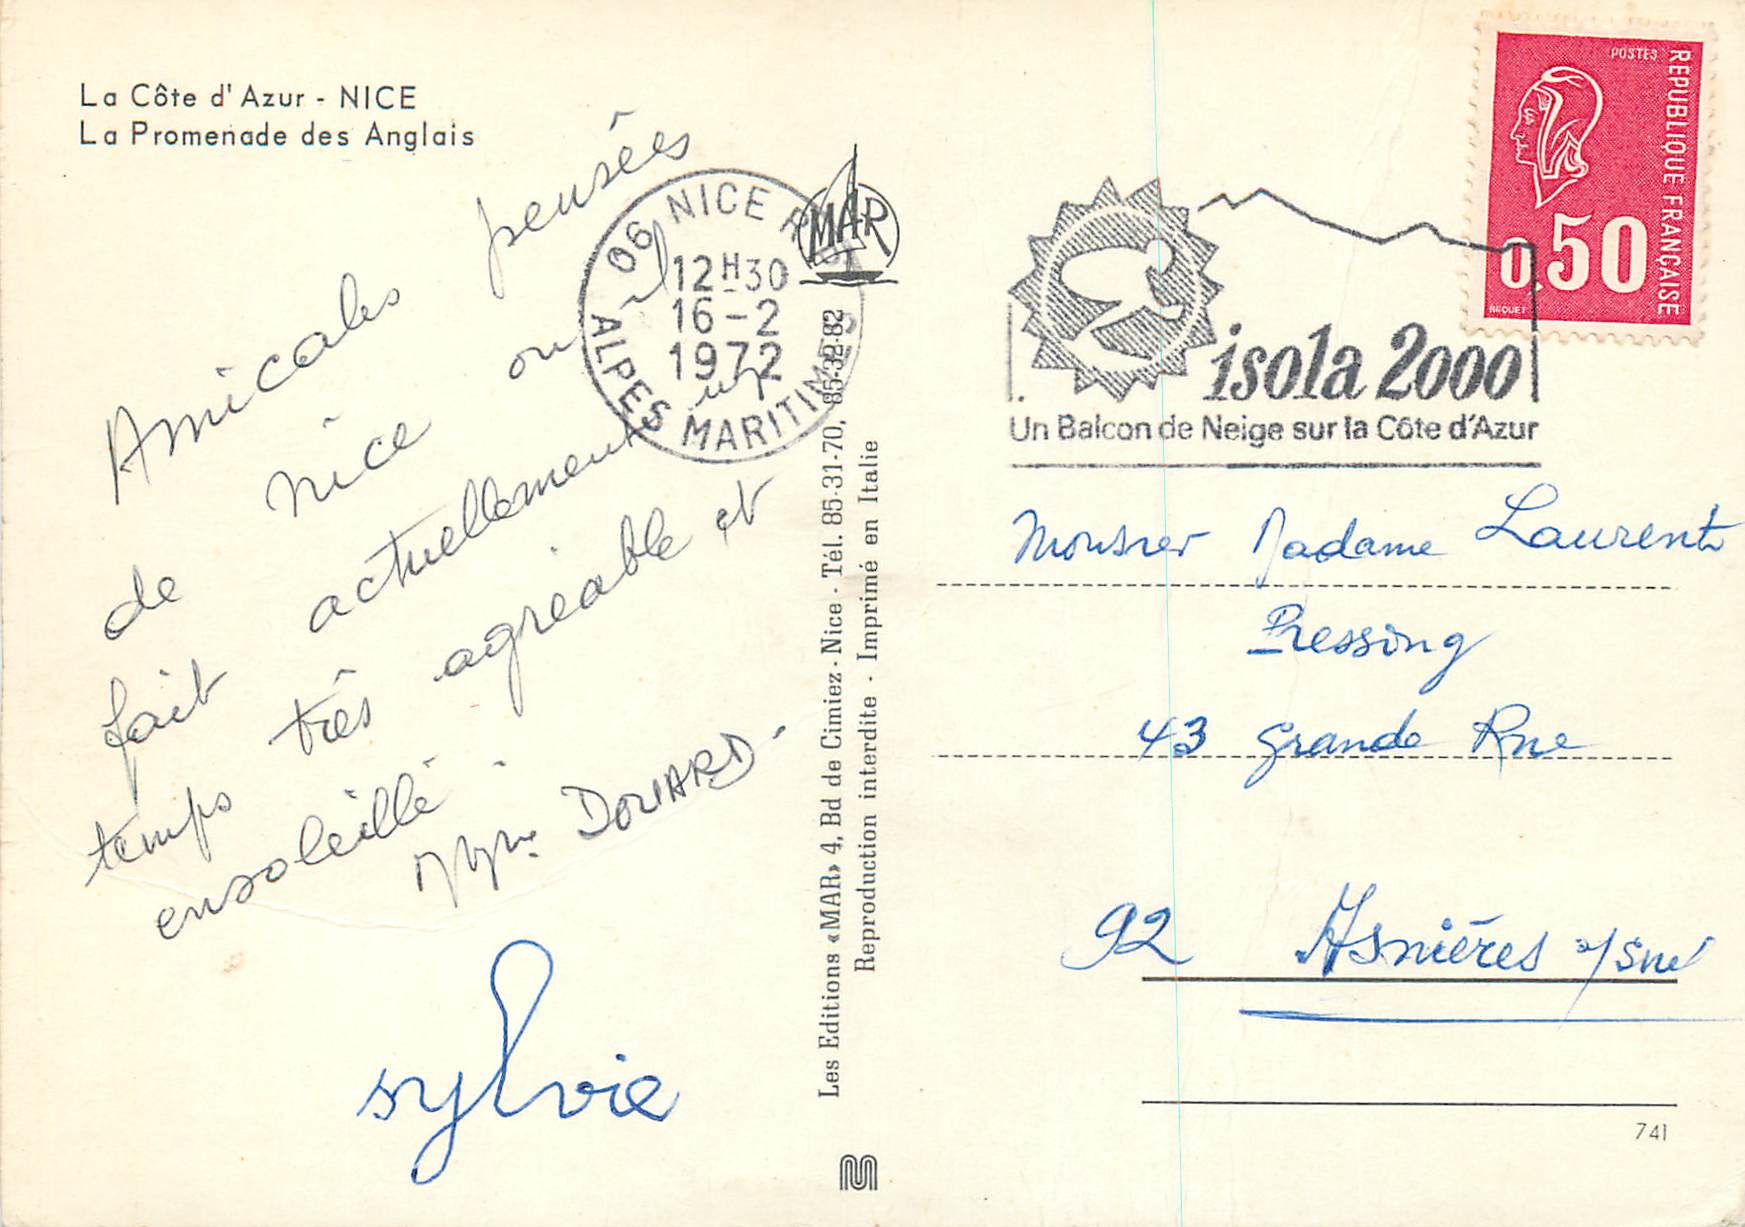 La Côte d'Azur - NICE
La Promenade des Anglais
Amicales pensées
de Nice où il
fait actuellement un
temps très agréable et
ensoleillé.
Mme DOUARD
sylvie
06 NICE R.P.
12H30
16-2
1972
ALPES MARITIMES
MAR
Les Editions «MAR» 4, Bd de Cimiez - Nice - Tél. 85-31-70, 85-32-82
Reproduction interdite - Imprimé en Italie
POSTES
REPUBLIQUE FRANÇAISE
0.50
BEQUET
isola 2000
Un Balcon de Neige sur la Côte d'Azur
Monsieur Madame Laurent
Pressing
43 Grande Rue
92 Asnières s/Sne
741